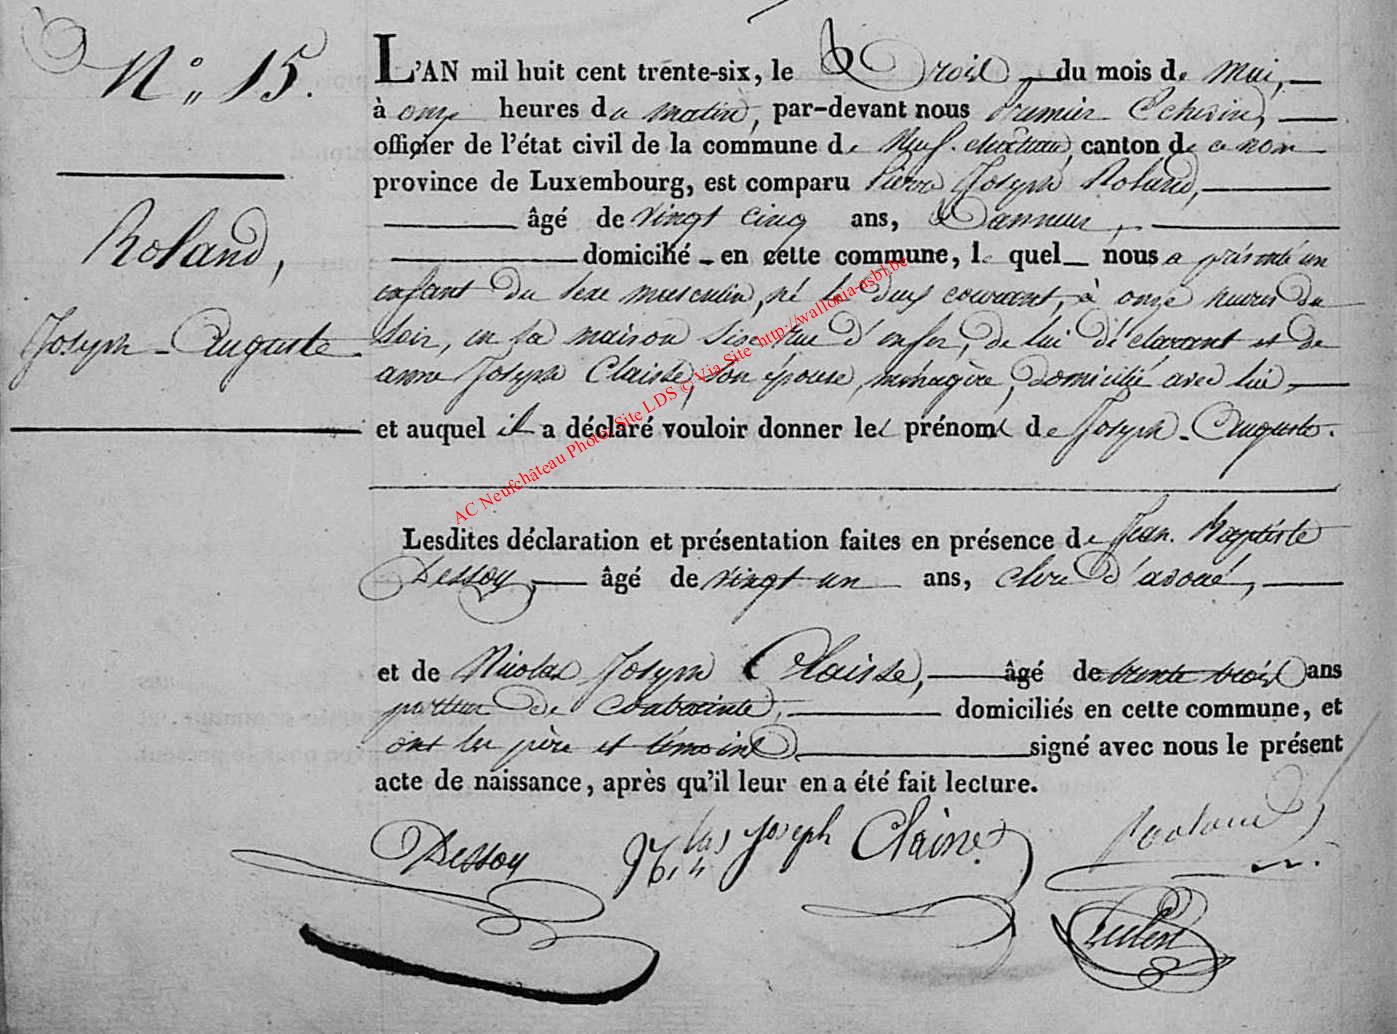 N° 15.
Roland,
Joseph-Auguste
L'AN mil huit cent trente-six, le trois du mois de Mai,
à onze heures du matin, par-devant nous Premier Echevin,
officier de l'état civil de la commune de Neufchâteau, canton de ce nom
province de Luxembourg, est comparu Pierre Joseph Roland,
âgé de vingt cinq ans, Tanneur,
domicilié en cette commune, lequel nous a présenté un
enfant du sexe masculin, né le deux courant, à onze heures du
soir, en sa maison sise rue d'enfer, de lui déclarant et de
anne Joseph Claisse, son épouse, ménagère, domicilié avec lui,
et auquel il a déclaré vouloir donner les prénoms de Joseph-Auguste.
Lesdites déclaration et présentation faites en présence de Jean Baptiste
Dessoy âgé de vingt un ans, clerc d'avoué,
et de Nicolas Joseph Claisse, âgé de trente trois ans
porteur de contrainte, domiciliés en cette commune, et
ont les père et témoins signé avec nous le présent
acte de naissance, après qu'il leur en a été fait lecture.
Dessoy Nicolas Joseph Claisse Roland
AC Neufchâteau Photo Site LDS © Via Site http://wallonia-asbl.be